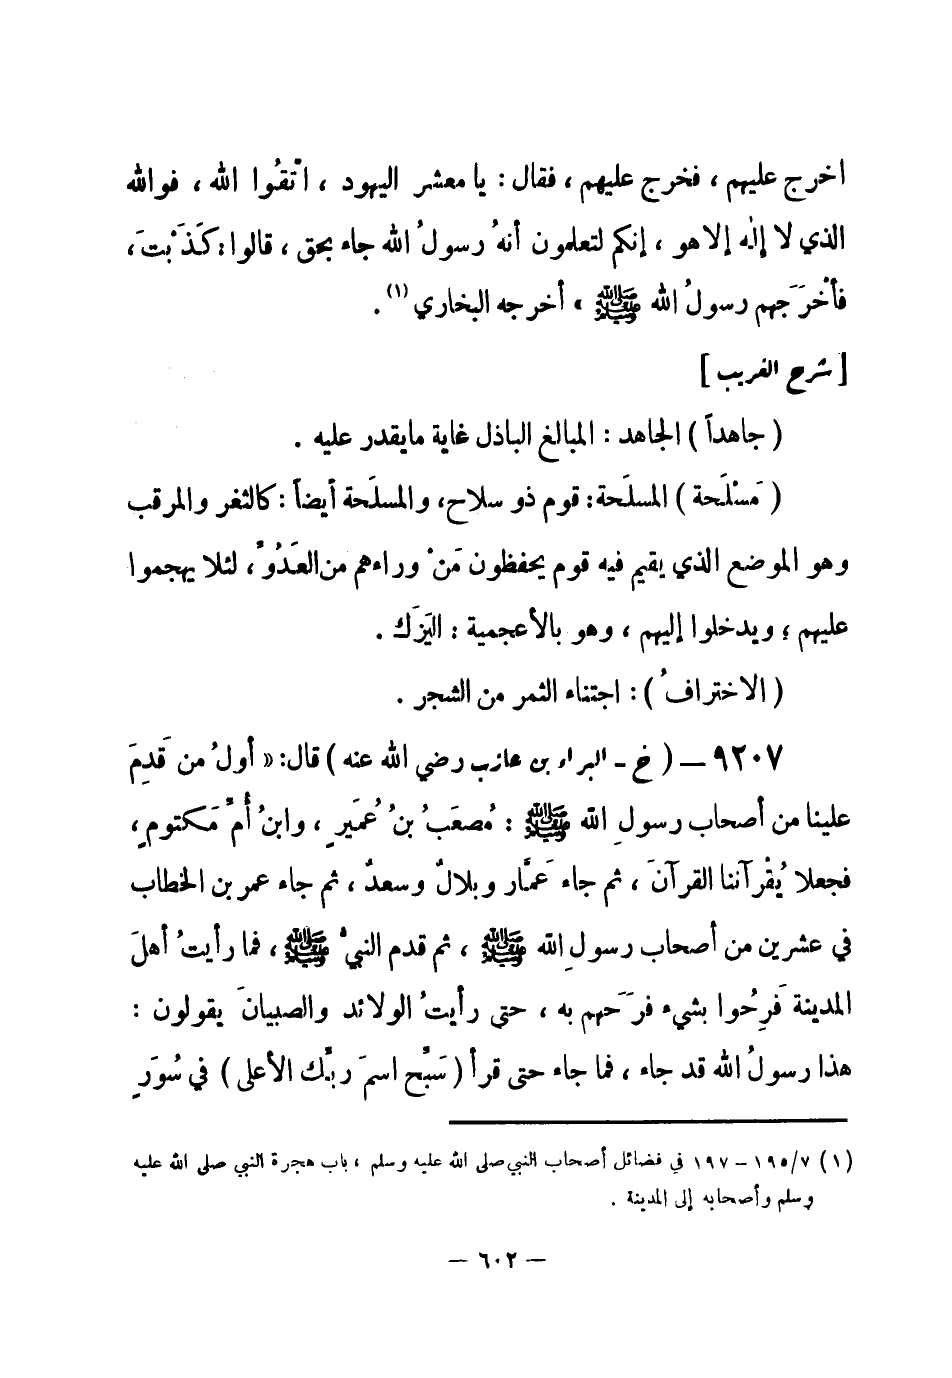 اخرج عليهم ، فخرج عليهم ، فقال : يا معشر اليهود ، اتَّقُوا الله ، فوالله
الذي لا إلٰه إلا هو ، إنكم لتعلمون أنهُ رسولُ الله جاء بحق ، قالوا : كَذَبْتَ ،
فأخْرَجَهم رسولُ الله ﷺ ، أخرجه البخاري (١) .
[ شرح الغريب ]
( جاهداً ) الجاهد : المبالغ الباذل غاية مايقدر عليه .
( مَسْلَحة ) المسلَحة : قوم ذو سلاح، والمسلَحة أيضاً : كالثغر والمرقب
وهو الموضع الذي يقيم فيه قوم يحفظون مَنْ وراءهم من العَدُوِّ ، لئلا يهجموا
عليهم ؛ ويدخلوا إليهم ، وهو بالأعجمية : اليَزَك .
( الاخترافُ ) : اجتناء الثمر من الشجر .
٩٢٠٧ – ( خ - البراء بن عازب رضي الله عنه ) قال : « أولُ من قَدِمَ
علينا من أصحاب رسولِ الله ﷺ : مُصعَبُ بنُ عُمَيرٍ ، وابنُ أُمِّ مَكتومٍ ،
فجعلا يُقْرآننا القرآنَ ، ثم جاء عَمَّار وبلالٌ وسعدٌ ، ثم جاء عمر بن الخطاب
في عشرين من أصحاب رسولِ الله ﷺ ، ثم قدم النبيُّ ﷺ ، فما رأيتُ أهلَ
المدينة فَرِحُوا بشيء فَرَحَهم به ، حتى رأيتُ الولائد والصبيانَ يقولون :
هذا رسولُ الله قد جاء ، فما جاء حتى قرأ ( سَبِّح اسمَ ربِّك الأعلى ) في سُوَرٍ
(١) ١٩٥/٧ – ١٩٧ في فضائل أصحاب النبي صلى الله عليه وسلم ، باب هجرة النبي صلى الله عليه
وسلم وأصحابه إلى المدينة .
– ٦٠٢ –